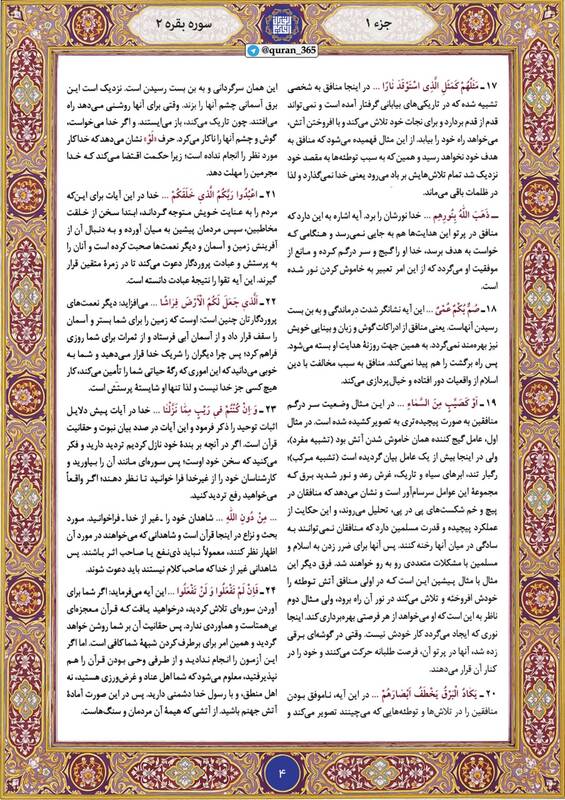 جزء ۱
سوره بقره ۲
@quran_365
۱۷ ـ مَثَلُهُمْ كَمَثَلِ الَّذِي اسْتَوْقَدَ نَارًا ... در اینجا منافق به شخصی
تشبیه شده که در تاریکی‌های بیابانی گرفتار آمده است و نمی‌تواند
قدم از قدم بردارد و برای نجات خود تلاش می‌کند و با افروختن آتش،
می‌خواهد راه خود را بیابد. از این مثال فهمیده می‌شود که منافق به
هدف خود نخواهد رسید و همین که به سبب توطئه‌ها به مقصد خود
نزدیک شد تمام تلاش‌هایش بر باد می‌رود یعنی خدا نمی‌گذارد و لذا
در ظلمات باقی می‌ماند.
ــ ذَهَبَ اللَّهُ بِنُورِهِم ... خدا نورشان را برد. آیه اشاره به این دارد که
منافق در پرتو این هدایت‌ها هم به جایی نمی‌رسد و هنگامی که
خواست به هدف برسد، خدا او را گیج و سر درگم کرده و مانع از
موفقیت او می‌گردد که از این امر تعبیر به خاموش کردن نور شده
است.
۱۸ ـ صُمٌّ بُكْمٌ عُمْيٌ ... این آیه نشانگر شدت درماندگی و به بن بست
رسیدن آنهاست. یعنی منافق از ادراکات گوش و زبان و بینایی خویش
نیز بهره‌مند نمی‌گردد. به همین جهت روزنهٔ هدایت او بسته می‌شود.
پس راه برگشت را هم پیدا نمی‌کند. منافق به سبب مخالفت با دین
اسلام از واقعیات دور افتاده و خیال‌پردازی می‌کند.
۱۹ ـ أَوْ كَصَيِّبٍ مِنَ السَّمَاءِ ... در این مثال وضعیت سر درگم
منافقین به صورت پیچیده‌تری به تصویر کشیده شده است. در مثال
اول، عامل گیج کننده همان خاموش شدن آتش بود (تشبیه مفرد)،
ولی در اینجا بیش از یک عامل بیان گردیده است (تشبیه مرکب)؛
رگبار تند، ابرهای سیاه و تاریک، غرش رعد و نور شدید برق که
مجموعهٔ این عوامل سرسام‌آور است و نشان می‌دهد که منافقان در
پیچ و خم شکست‌های پی در پی، تحلیل می‌روند، و این حکایت از
عملکرد پیچیده و قدرت مسلمین دارد که منافقان نمی‌توانند به
سادگی در میان آنها رخنه کنند. پس آنها برای ضرر زدن به اسلام و
مسلمین با مشکلات متعددی رو به رو خواهند شد. فرق دیگر این
مثال با مثال پیشین این است که در اولی منافق آتش توطئه را
خودش افروخته و تلاش می‌کند در نور آن راه برود، ولی مثال دوم
ناظر به این است که او می‌خواهد از هر فرصتی بهره‌برداری کند. اینجا
نوری که ایجاد می‌گردد کار خودش نیست. وقتی در گوشه‌ای برقی
زده شد، آنها در پرتو آن، فرصت طلبانه حرکت می‌کنند و خود را در
کنار آن قرار می‌دهند.
۲۰ ـ يَكَادُ الْبَرْقُ يَخْطَفُ أَبْصَارَهُمْ ... در این آیه، ناموفق بودن
منافقین را در تلاش‌ها و توطئه‌هایی که می‌چینند تصویر می‌کند و
این همان سرگردانی و به بن بست رسیدن است. نزدیک است این
برق آسمانی چشم آنها را بزند. وقتی برای آنها روشنی می‌دهد راه
می‌افتند. چون تاریک می‌کند، باز می‌ایستند. و اگر خدا می‌خواست،
گوش و چشم آنها را ناکار می‌کرد. حرف «لَوْ» نشان می‌دهد که خدا کار
مورد نظر را انجام نداده است؛ زیرا حکمت اقتضا می‌کند که خدا
مجرمین را مهلت دهد.
۲۱ ـ اعْبُدُوا رَبَّكُمُ الَّذِي خَلَقَكُمْ ... خدا در این آیات برای این‌که
مردم را به عنایت خویش متوجه گرداند، ابتدا سخن از خلقت
مخاطبین، سپس مردمان پیشین به میان آورده و به دنبال آن از
آفرینش زمین و آسمان و دیگر نعمت‌ها صحبت کرده است و آنان را
به پرستش و عبادت پروردگار دعوت می‌کند تا در زمرهٔ متقین قرار
گیرند. این آیه تقوا را نتیجهٔ عبادت دانسته است.
۲۲ ـ الَّذِي جَعَلَ لَكُمُ الْأَرْضَ فِرَاشًا ... می‌افزاید: دیگر نعمت‌های
پروردگارتان چنین است: اوست که زمین را برای شما بستر و آسمان
را سقف قرار داد و از آسمان آبی فرستاد و از ثمرات برای شما روزی
فراهم کرد؛ پس چرا دیگران را شریک خدا قرار می‌دهید و شما به
خوبی می‌دانید که این اموری که رگهٔ حیاتی شما را تأمین می‌کند، کار
هیچ کسی جز خدا نیست و لذا تنها او شایستهٔ پرستش است.
۲۳ ـ وَ إِنْ كُنْتُمْ فِي رَيْبٍ مِمَّا نَزَّلْنَا ... خدا در آیات پیش دلایل
اثبات توحید را ذکر فرمود و این آیات در صدد بیان نبوت و حقانیت
قرآن است. اگر در آنچه بر بندهٔ خود نازل کردیم تردید دارید و فکر
می‌کنید که سخن خود اوست؛ پس سوره‌ای مانند آن را بیاورید و
کارشناسان خود را از غیر‌خدا فرا خوانید تا نظر دهند؛ اگر واقعاً
می‌خواهید رفع تردید کنید.
... مِنْ دُونِ اللَّهِ ... شاهدان خود را ـ غیر از خدا ـ فراخوانید. مورد
بحث و نزاع در اینجا قرآن است و شاهدانی که می‌خواهند در مورد آن
اظهار نظر کنند، معمولاً نباید ذی‌نفع یا صاحب اثر باشند. پس
شاهدانی غیر از خدا که صاحب کلام نیستند باید دعوت شوند.
۲۴ ـ فَإِنْ لَمْ تَفْعَلُوا وَ لَنْ تَفْعَلُوا ... این آیه می‌فرماید: اگر شما برای
آوردن سوره‌ای تلاش کردید، درخواهید یافت که قرآن معجزه‌ای
بی‌همتاست و هماوردی ندارد. پس حقانیت آن بر شما روشن خواهد
گردید و همین امر برای برطرف کردن شبههٔ شما کافی است. اما اگر
این آزمون را انجام ندادید و از طرفی وحی بودن قرآن را هم
نپذیرفتید، معلوم می‌شود که شما اهل عناد و غرض‌ورزی هستید، نه
اهل منطق، و با رسول خدا دشمنی دارید. پس در این صورت آمادهٔ
آتش جهنم باشید. از آتشی که هیمهٔ آن مردمان و سنگ‌هاست.
۴